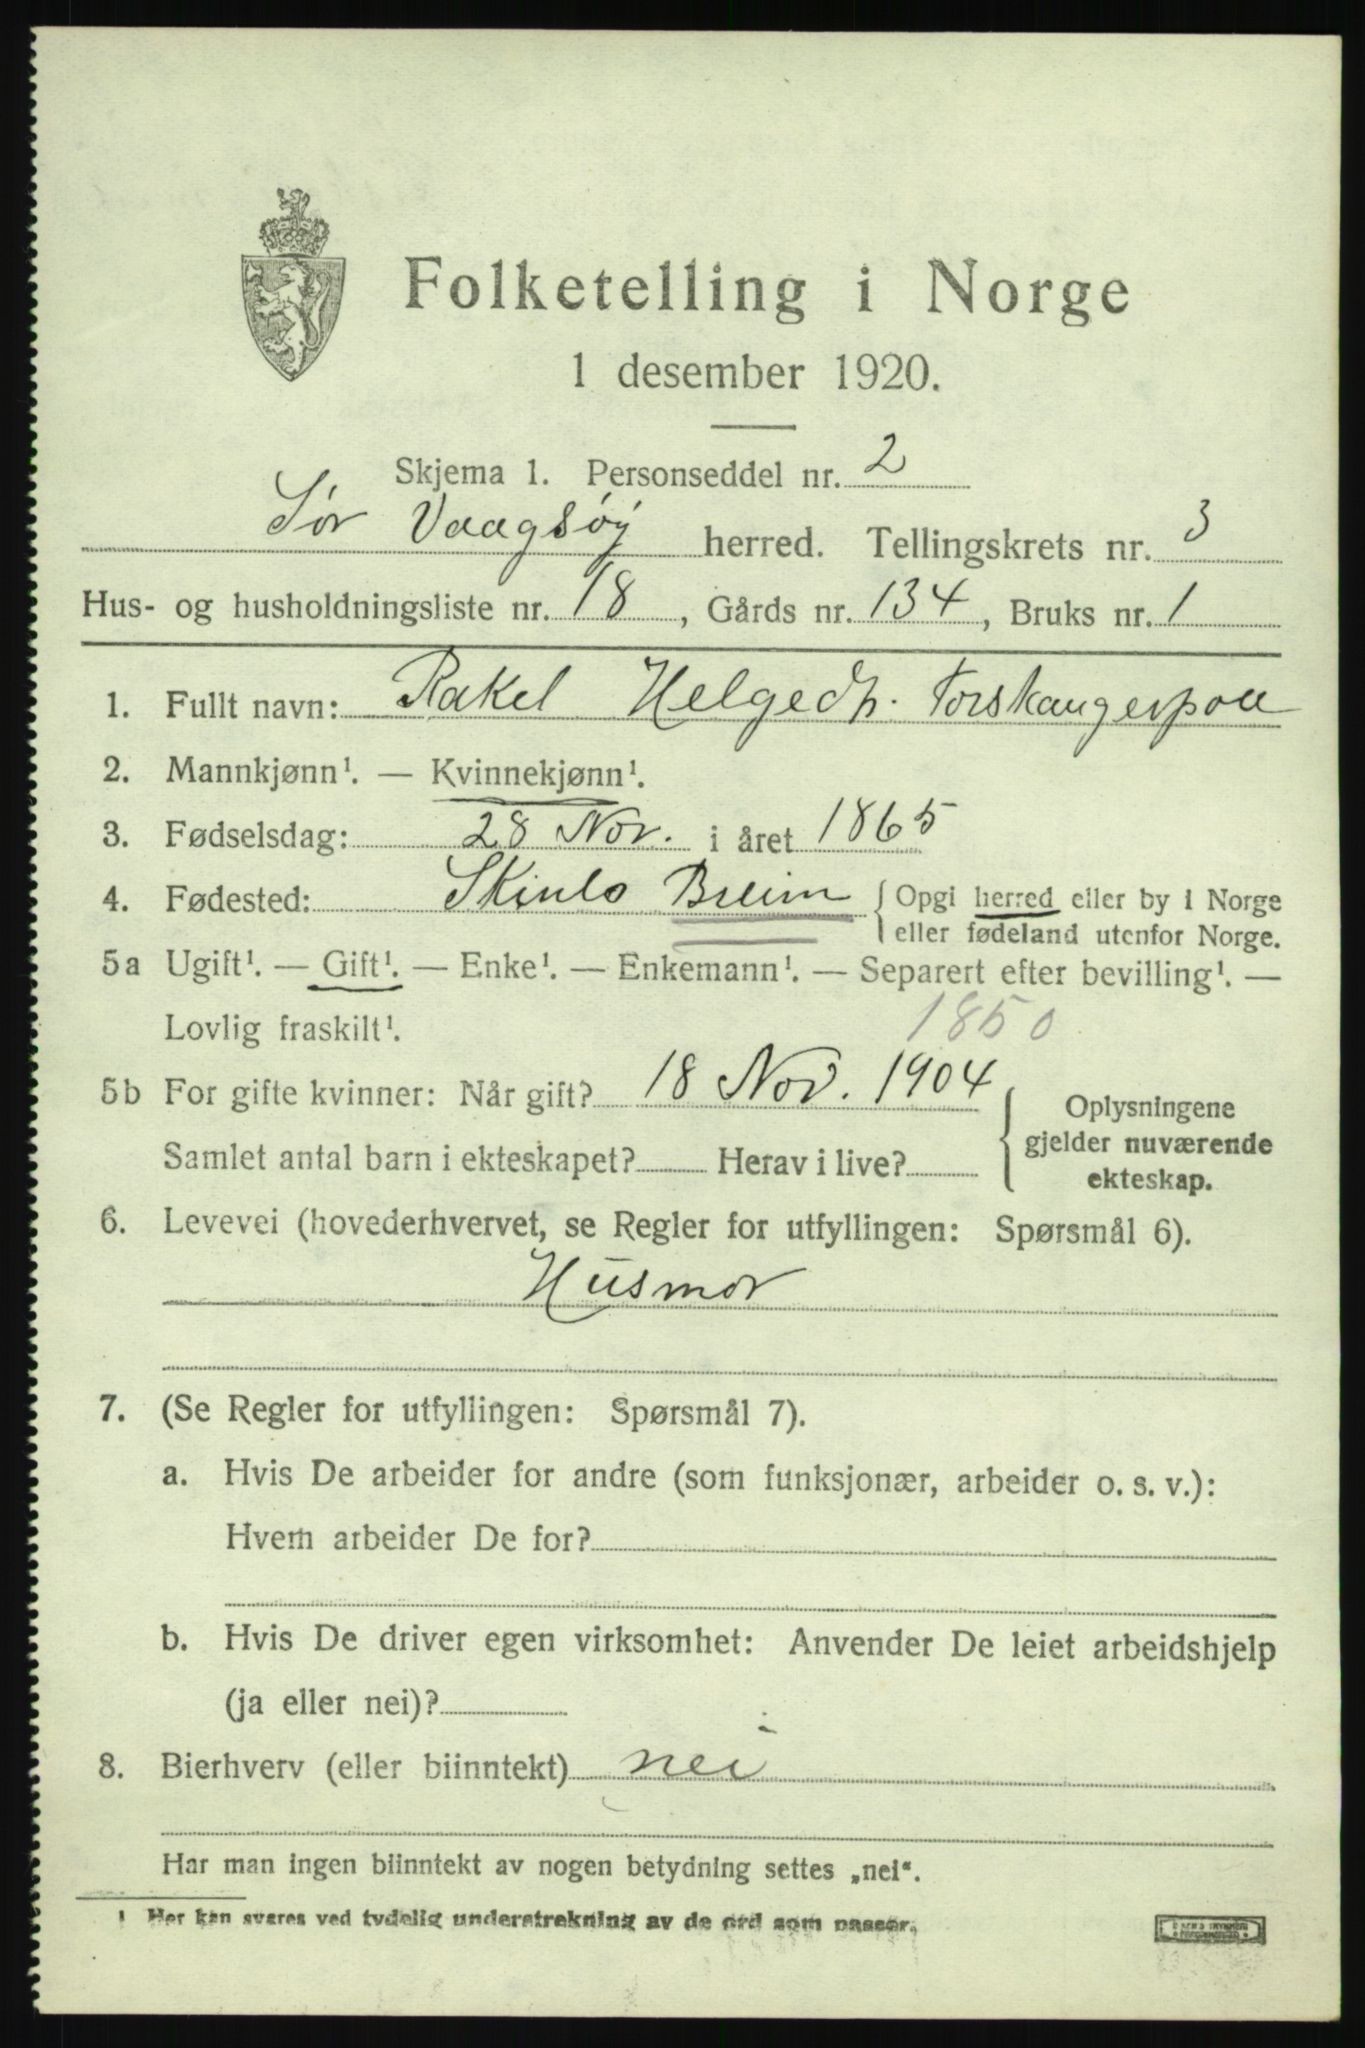 Folketelling i Norge
1 desember 1920.
Skjema 1. Personseddel nr. 2
Sør Vaagsøy herred. Tellingskrets nr. 3
Hus- og husholdningsliste nr. 18, Gårds nr. 134, Bruks nr. 1
1. Fullt navn: Rakel Helgedtr. Torskangerpoll
2. Mannkjønn¹. — Kvinnekjønn¹.
3. Fødselsdag: 28 Nov. i året 1865
4. Fødested: Skinlo Breim { Opgi herred eller by i Norge
eller fødeland utenfor Norge.
5a Ugift¹. — Gift¹. — Enke¹. — Enkemann¹. — Separert efter bevilling¹. —
Lovlig fraskilt¹. 1850
5b For gifte kvinner: Når gift? 18 Nov. 1904 { Oplysningene
gjelder nuværende
Samlet antal barn i ekteskapet? Herav i live?
ekteskap.
6. Levevei (hovederhvervet, se Regler for utfyllingen: Spørsmål 6).
Husmor
7. (Se Regler for utfyllingen: Spørsmål 7).
a. Hvis De arbeider for andre (som funksjonær, arbeider o. s. v.):
Hvem arbeider De for?
b. Hvis De driver egen virksomhet: Anvender De leiet arbeidshjelp
(ja eller nei)?
8. Bierhverv (eller biinntekt) nei
Har man ingen biinntekt av nogen betydning settes „nei“.
1 Her kan svares ved tydelig understrekning av de ord som passer.